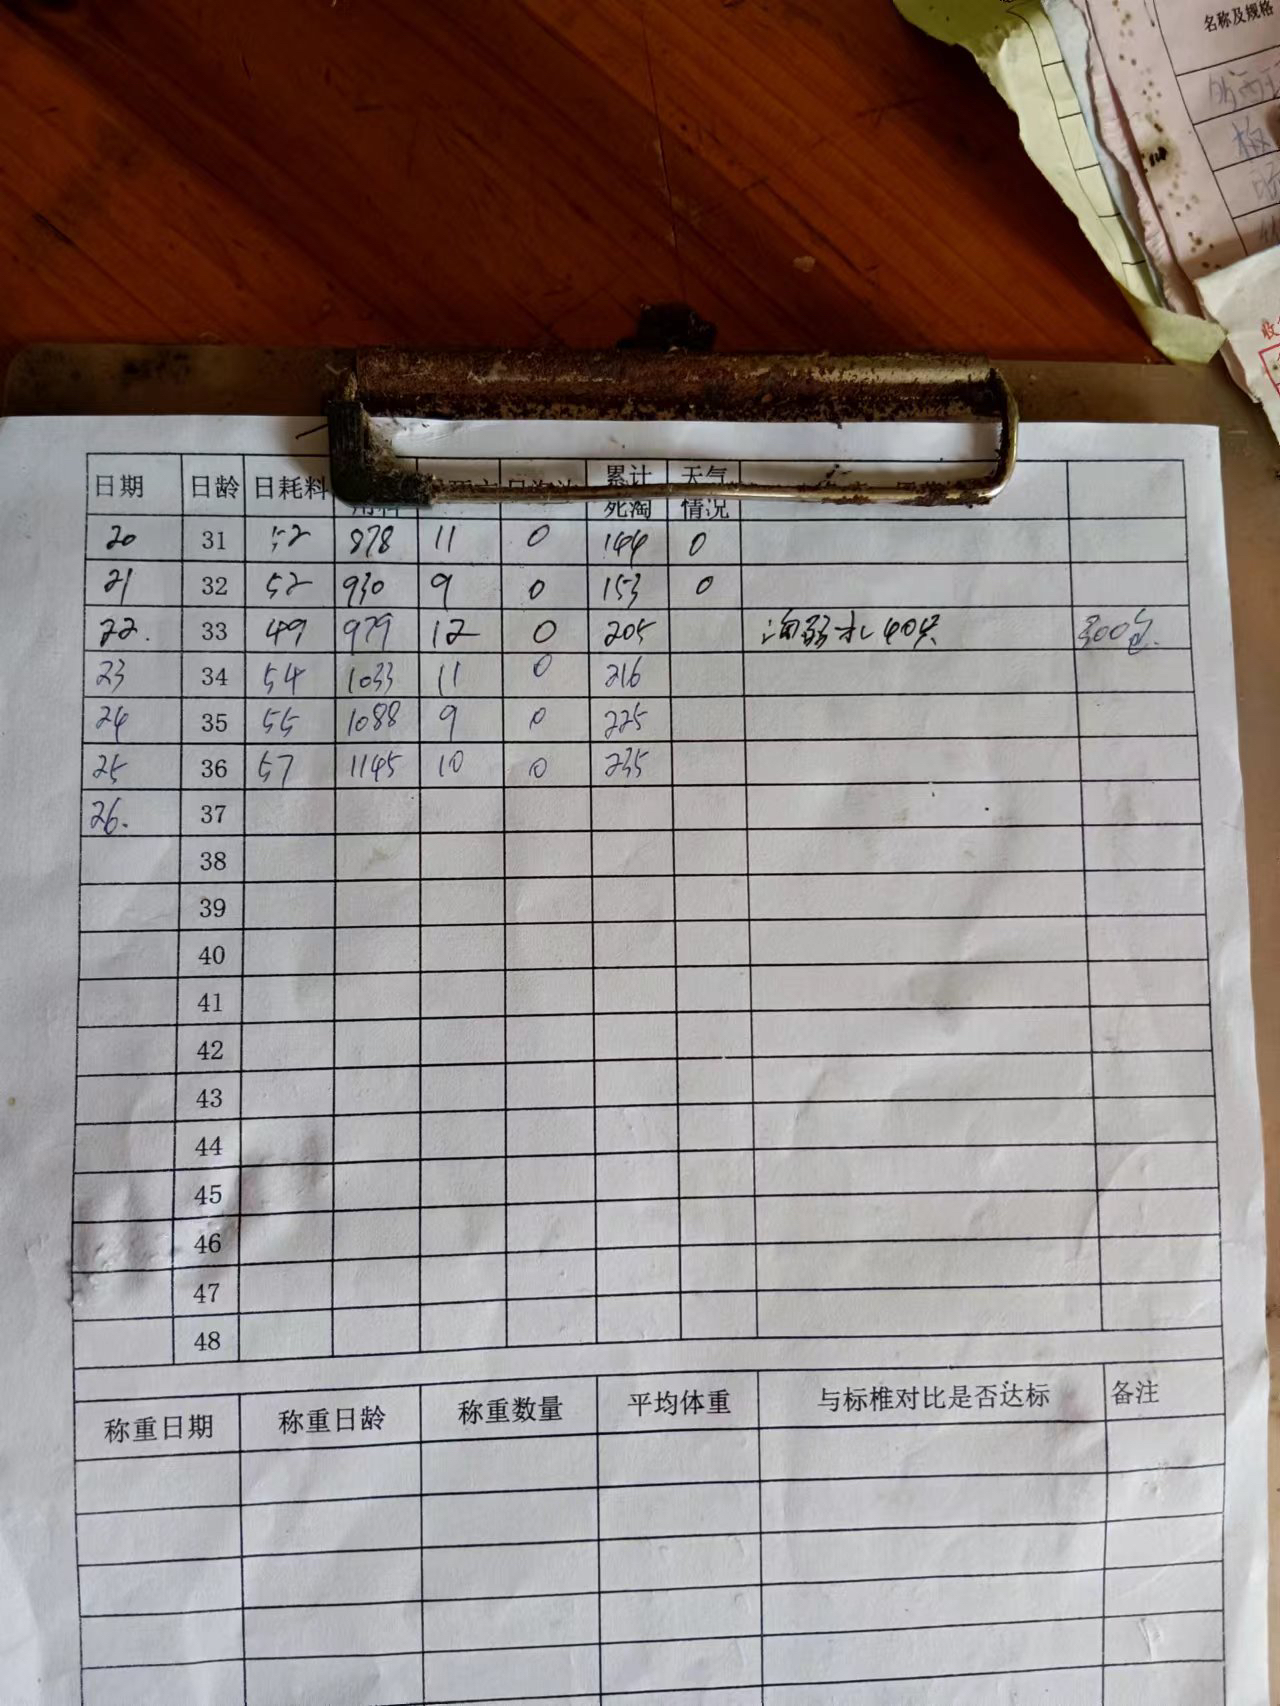 名称及规格
日期 日龄 日耗料 累计死淘 天气情况
20 31 52 878 11 0 144 0
21 32 52 930 9 0 153 0
22. 33 49 979 12 0 205 淘弱小40只 300包.
23 34 54 1033 11 0 216
24 35 55 1088 9 0 225
25 36 57 1145 10 0 235
26. 37
38
39
40
41
42
43
44
45
46
47
48
称重日期 称重日龄 称重数量 平均体重 与标椎对比是否达标 备注